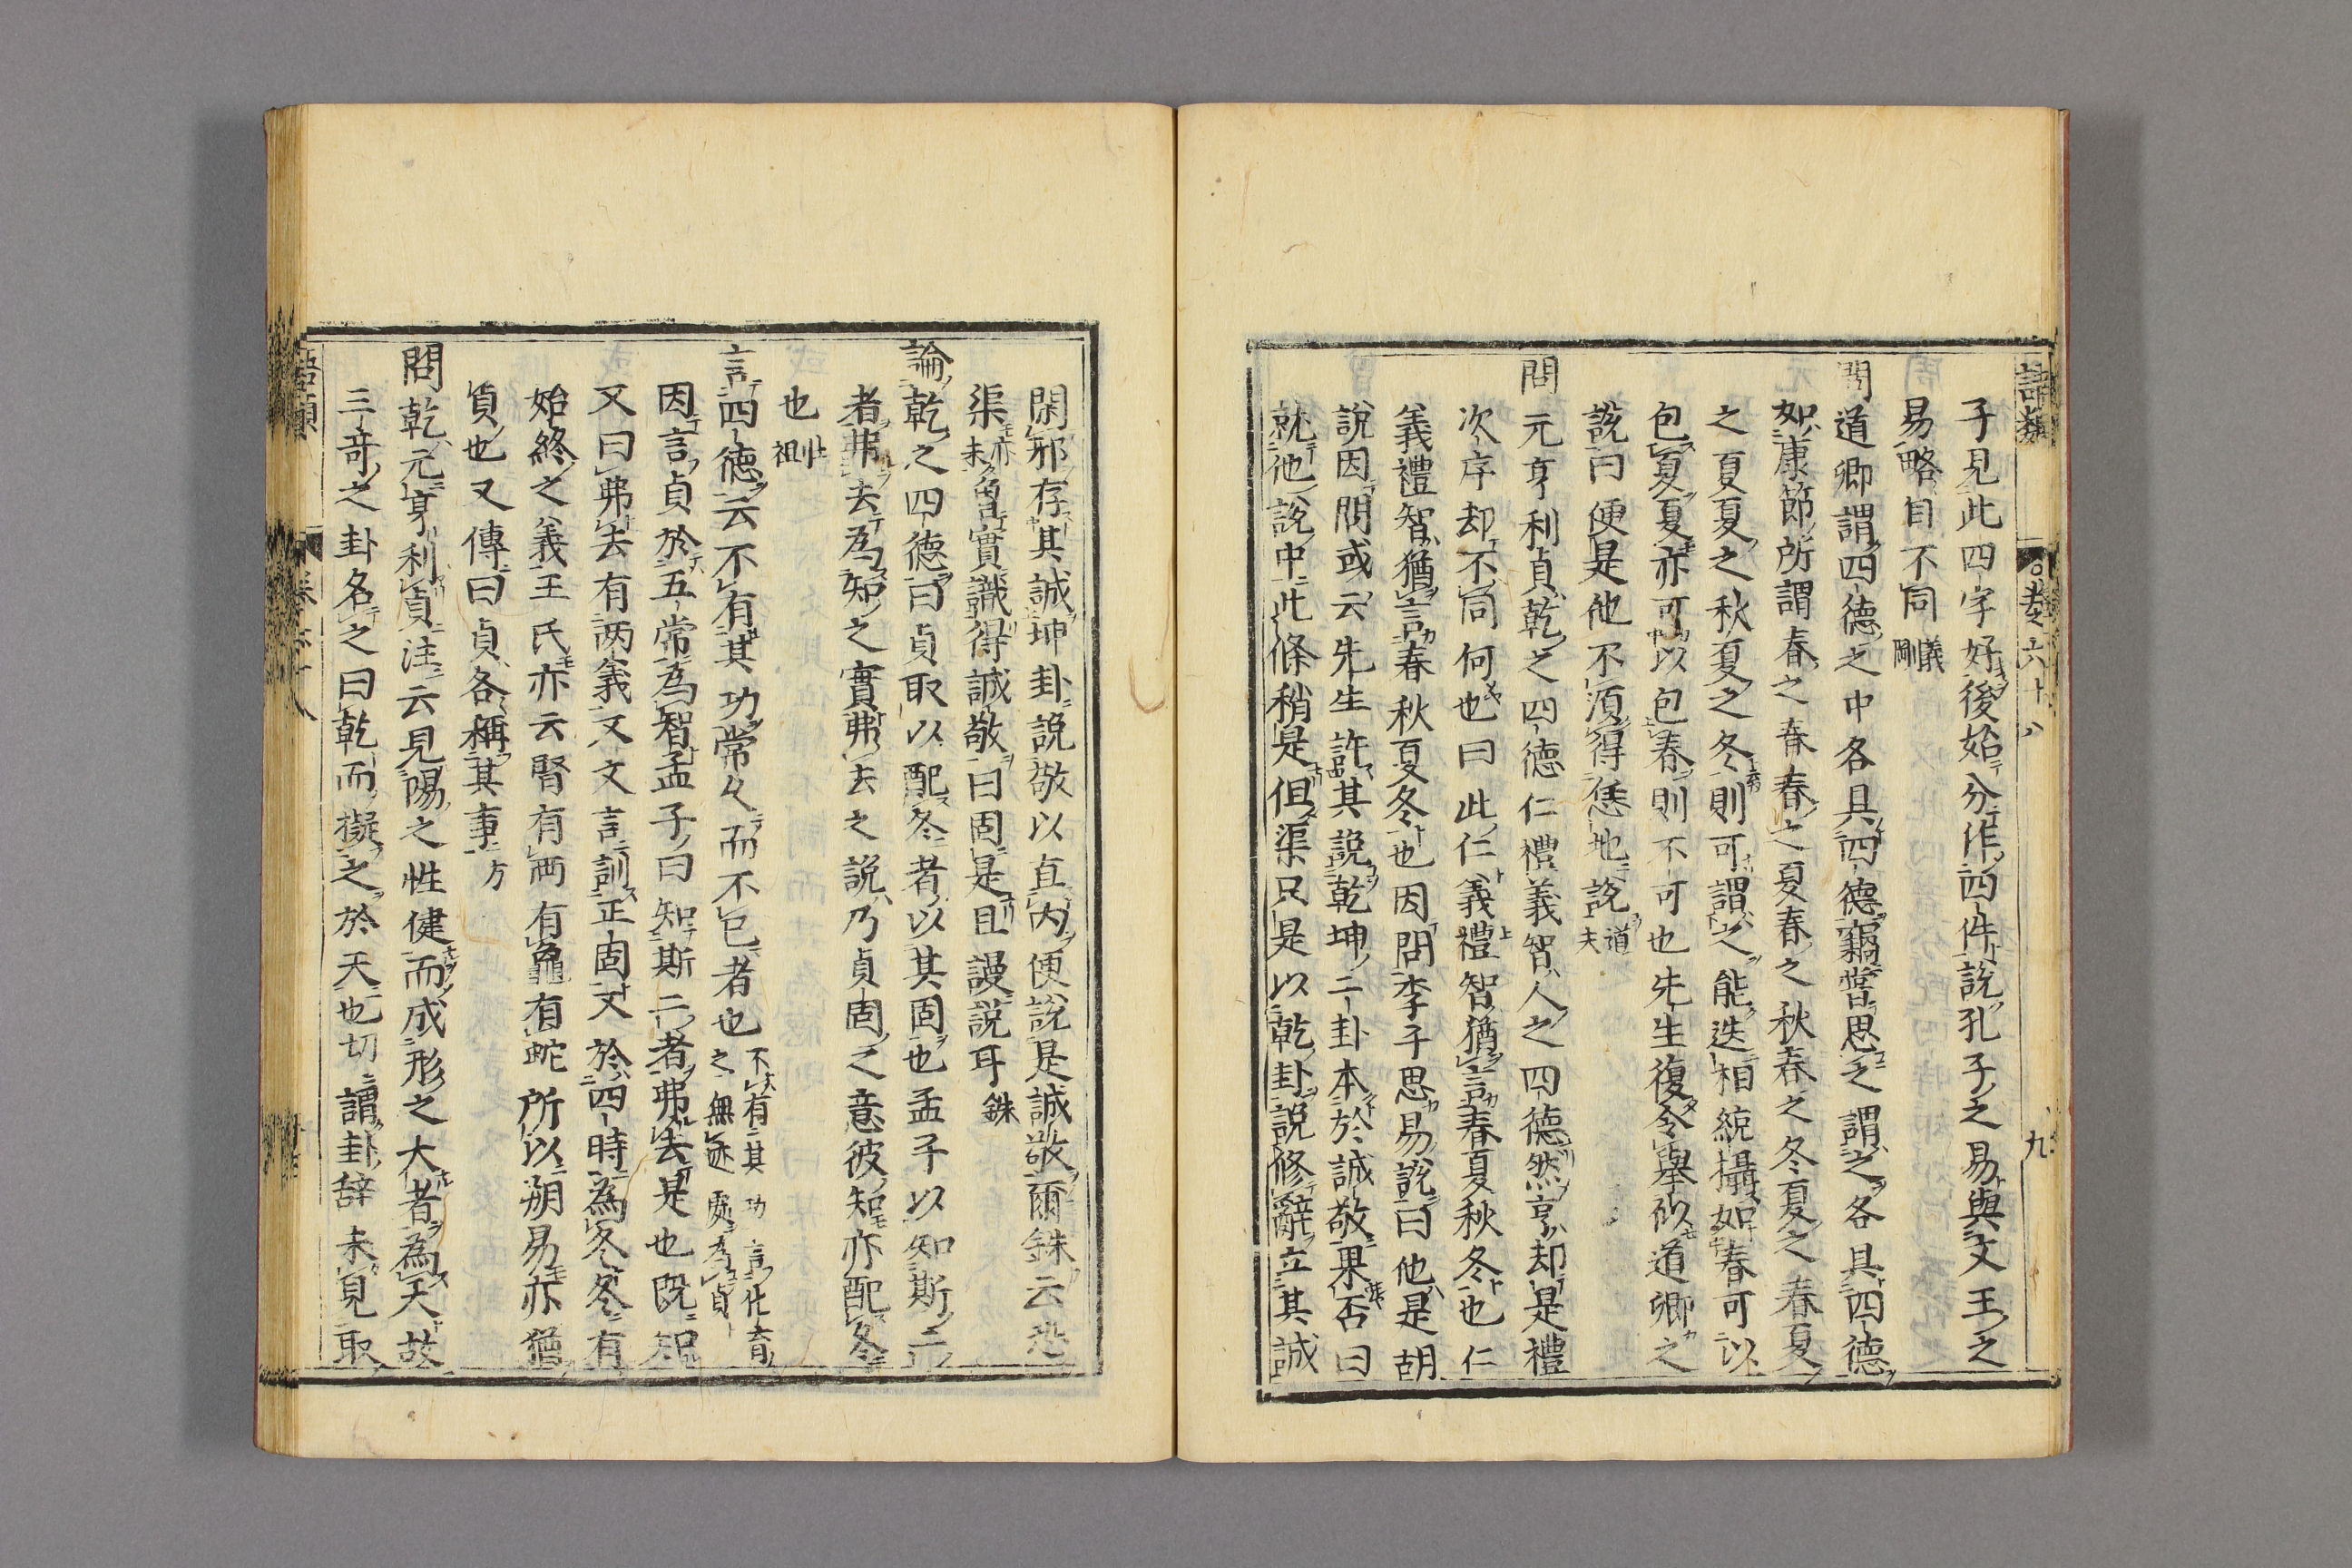 語類 卷六十八 九
子見此四字好後始分作四件說孔子之易與文王之
易略自不同 義剛
問道卿謂四德之中各具四德竊嘗思之謂之各具四德
如康節所謂春之春春之夏春之秋春之冬夏之春夏
之夏夏之秋夏之冬則可謂之能迭相統攝如春可以
包夏夏亦可以包春則不可也先生復令舉似道卿之
說曰便是他不須得恁地說 道夫
問元亨利貞乾之四德仁禮義智人之四德然亨却是禮
次序却不同何也曰此仁義禮智猶言春夏秋冬也仁
義禮智猶言春秋夏冬也因問李子思易說曰他是胡
說因問或云先生許其說乾坤二卦本於誠敬果否曰
就他說中此條稍是但渠只是以乾卦說修辭立其誠
閑邪存其誠坤卦說敬以直內便說是誠敬爾銖云恐
渠亦未曾實識得誠敬曰固是且謾說耳 銖
論乾之四德曰貞取以配冬者以其固也孟子以知斯二
者弗去為知之實弗去之說乃貞固之意彼知亦配冬
也 壯祖
言四德云不有其功常久而不已者也 不有其功言化育之無迹處為貞
因言貞於五常為智孟子曰知斯二者弗去是也既知
又曰弗去有兩義又文言訓正固又於四時為冬冬有
始終之義王氏亦云腎有兩有龜有蛇所以朔易亦猶
貞也又傳曰貞各稱其事 方
問乾元亨利貞注云見陽之性健而成形之大者為天故
三奇之卦名之曰乾而擬之於天也切謂卦辭未見取
語類 卷六十八